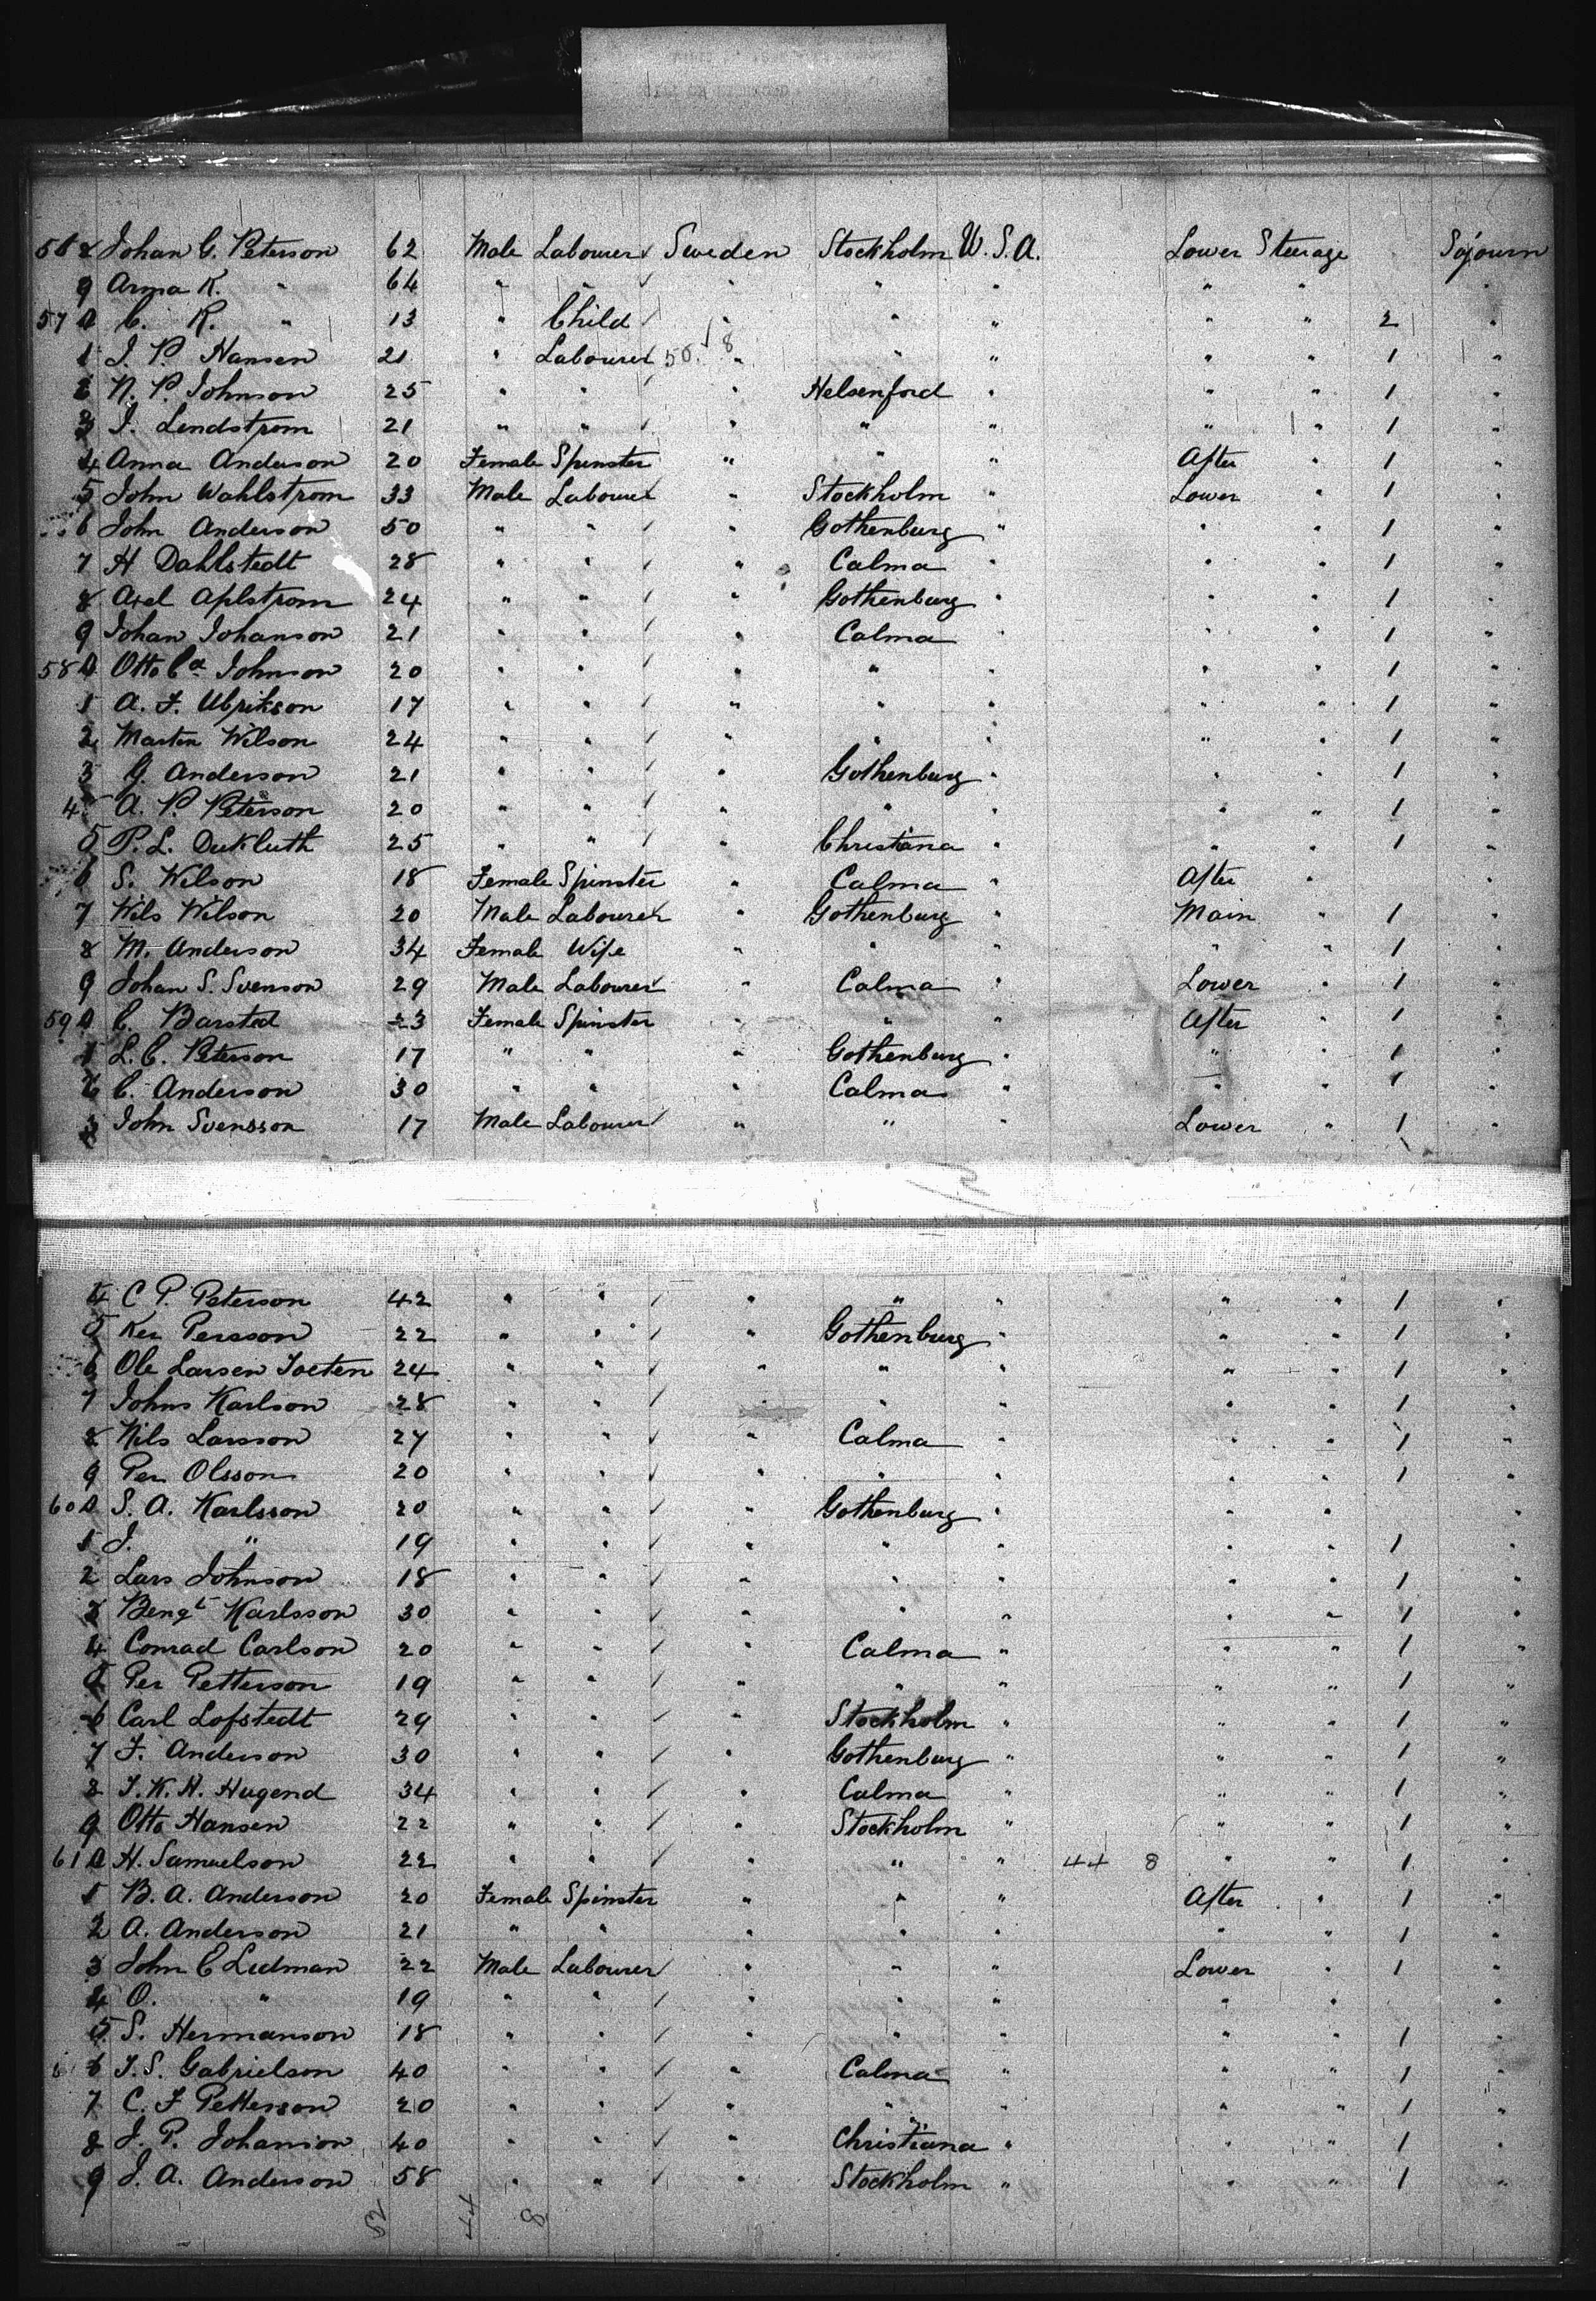 568 Johan G. Peterson 62 Male Labourer Sweden Stockholm U.S.A. Lower Steerage Sojourn
9 Anna K. " 64 " " " " " " " "
570 C. K. " 13 " Child " " " " " 2 "
1 J. P. Hansen 21 " Labourer 56 8 " " " " " 1 "
2 N. P. Johnson 25 " " " Helsenford " " " 1 "
3 J. Lendstrom 21 " " " " " " " 1 "
4 Anna Anderson 20 Female Spinster " " " After " 1 "
5 John Wahlstrom 33 Male Labourer " Stockholm " Lower " 1 "
6 John Anderson 50 " " " Gothenburg " " " 1 "
7 H Dahlstedt 28 " " " Calma " " " 1 "
8 Axel Aplstrom 24 " " " Gothenburg " " " 1 "
9 Johan Johanson 21 " " " Calma " " " 1 "
580 Otto Ca Johnson 20 " " " " " " " 1 "
1 A. F. Ulprikson 17 " " " " " " " 1 "
2 Martin Wilson 24 " " " " " " " 1 "
3 G. Anderson 21 " " " Gothenburg " " " 1 "
4 A. P. Peterson 20 " " " " " " " 1 "
5 P. L. Dukluth 25 " " " Christiana " " " 1 "
6 S. Wilson 18 Female Spinster " Calma " After " "
7 Wils Wilson 20 Male Labourer " Gothenburg " Main " 1 "
8 M. Anderson 34 Female Wife " " " " " 1 "
9 Johan S. Svenson 29 Male Labourer " Calma " Lower " 1 "
590 C. Barsted 23 Female Spinster " " " After " 1 "
1 L. C. Peterson 17 " " " Gothenburg " " " 1 "
2 C. Anderson 30 " " " Calma " " " 1 "
3 John Svensson 17 Male Labourer " " " Lower " 1 "
4 C P. Peterson 42 " " " " " " " 1 "
5 Ker Persson 22 " " " Gothenburg " " " 1 "
6 Ole Larsen Joeten 24 " " " " " " " 1 "
7 Johns Karlson 28 " " " " " " " 1 "
8 Nils Larsson 27 " " " Calma " " " 1 "
9 Per Olsson 20 " " " " " " " 1 "
600 S. A. Karlsson 20 " " " Gothenburg " " " "
1 J. " 19 " " " " " " " 1 "
2 Lars Johnson 18 " " " " " " " 1 "
3 Bengt Karlsson 30 " " " " " " " 1 "
4 Conrad Carlson 20 " " " Calma " " " 1 "
5 Per Petterson 19 " " " " " " " 1 "
6 Carl Lofstedt 29 " " " Stockholm " " " 1 "
7 F. Anderson 30 " " " Gothenburg " " " 1 "
8 J. K. H. Hugend 34 " " " Calma " " " 1 "
9 Otto Hansen 22 " " " Stockholm " " " 1 "
610 H. Samuelson 22 " " " " " 44 8 " " 1 "
1 B. A. Anderson 20 Female Spinster " " " After " 1 "
2 A. Anderson 21 " " " " " " " 1 "
3 John C Ledman 22 Male Labourer " " " Lower " 1 "
4 O. " 19 " " " " " " " "
5 S. Hermanson 18 " " " " " " " 1 "
6 J. S. Gabrielson 40 " " " Calma " " " 1 "
7 C. F Petterson 20 " " " " " " " 1 "
8 J. P. Johanson 40 " " " Christiana " " " 1 "
9 J. A. Anderson 58 " " " Stockholm " " " 1 "
52 44 8